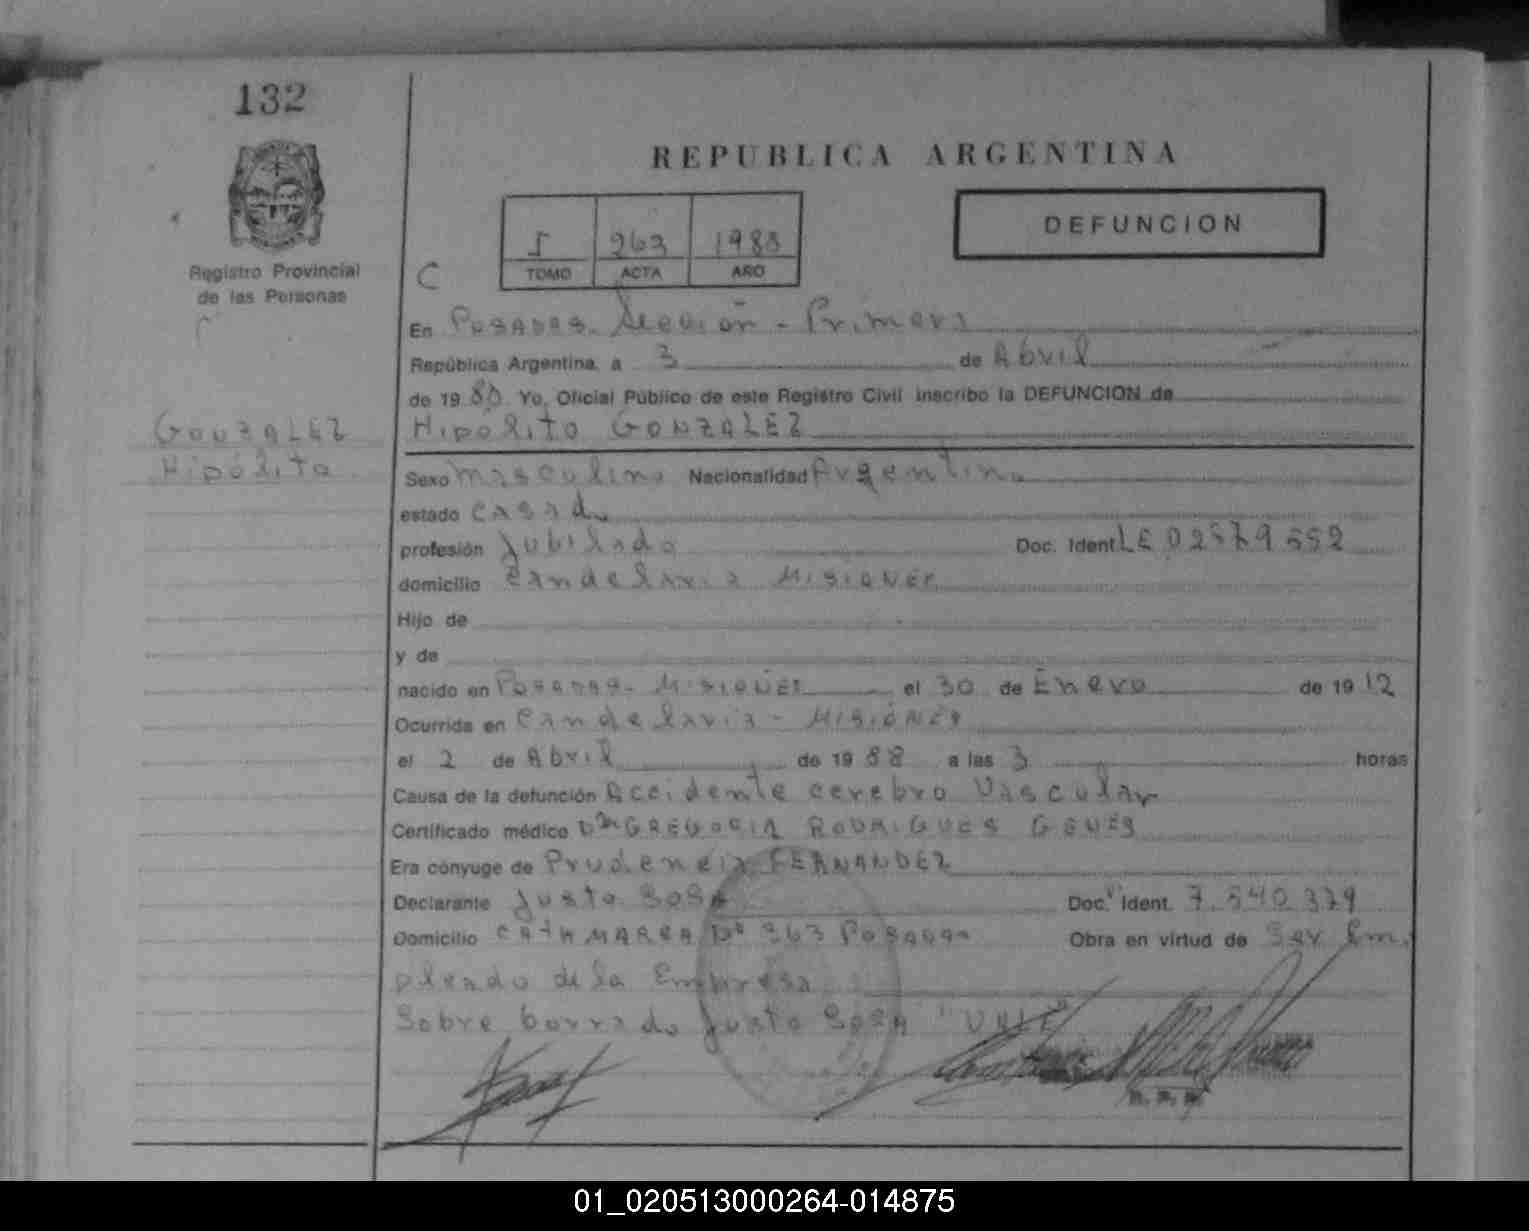 132
REPUBLICA ARGENTINA
DEFUNCION
I 263 1988
TOMO ACTA AÑO
Registro Provincial
de las Personas
C
En Posadas. Sección - Primera
República Argentina, a 3 de Abril
de 19 88 Yo, Oficial Público de este Registro Civil inscribo la DEFUNCION de
GONZALEZ
Hipólito
Hipólito GONZALEZ
Sexo masculino Nacionalidad Argentina
estado casado
profesión Jubilado Doc. Ident. LE 02579552
domicilio Candelaria Misiones
Hijo de
y de
nacido en Posadas - Misiones el 30 de Enero de 19 12
Ocurrida en Candelaria - Misiones
el 2 de Abril de 19 88 a las 3 horas
Causa de la defunción Accidente cerebro Vascular
Certificado médico Dra GREGORIA RODRIGUES
Era cónyuge de Prudencia FERNANDEZ
Declarante Justo SOSA Doc. Ident. 7.540.379
Domicilio CATAMARCA Nº 363 Posadas Obra en virtud de Ser Em.
pleado de la Empresa
Sobre borrado Justo SOSA "VALE"
01_020513000264-014875